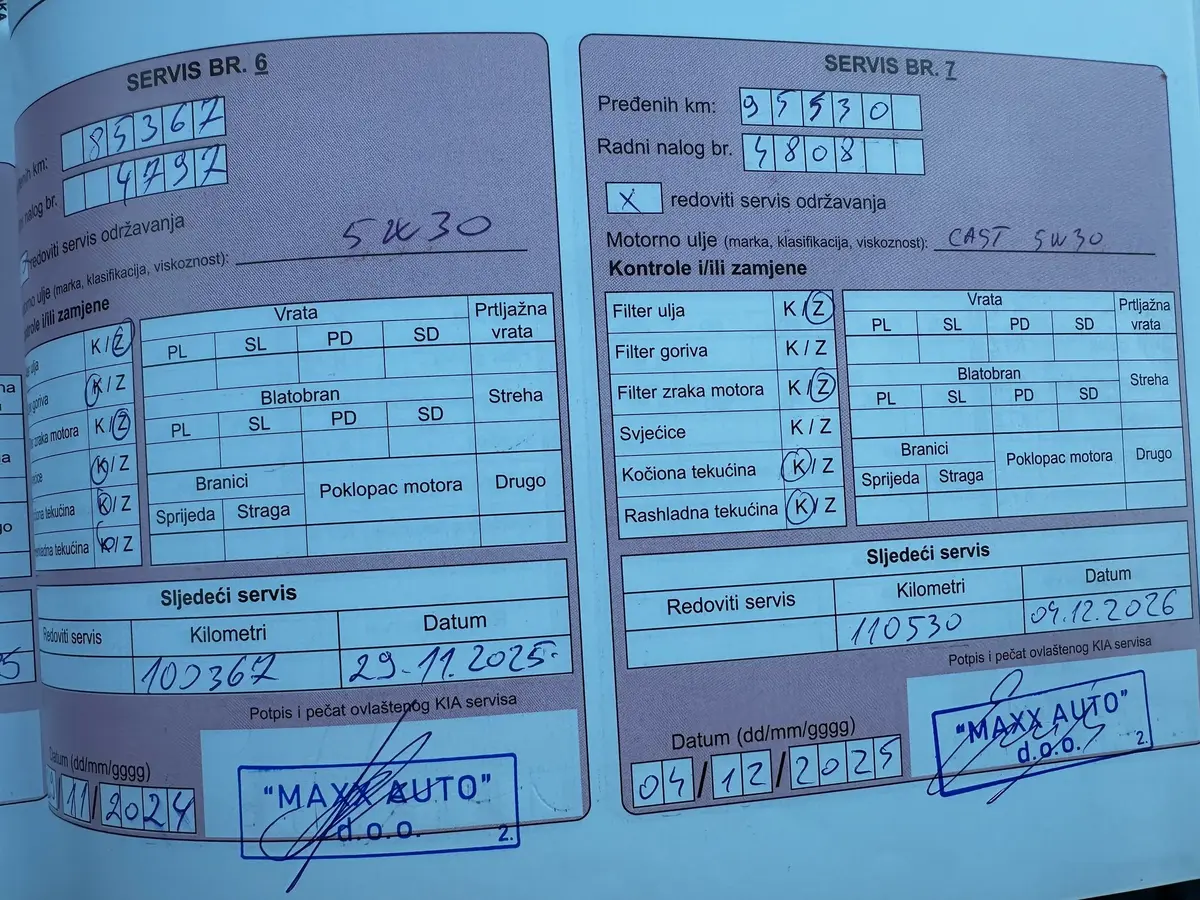 SERVIS BR. 6
km: 85367
nalog br. 4797
redoviti servis održavanja
ulje (marka, klasifikacija, viskoznost): 5W30
i/ili zamjene
K / Z
goriva K / Z
zraka motora K / Z
K / Z
tekućina K / Z
tekućina K / Z
Vrata
Prtljažna vrata
PL SL PD SD
Blatobran
Streha
PL SL PD SD
Branici
Poklopac motora
Drugo
Sprijeda Straga
Sljedeći servis
Redoviti servis
Kilometri
Datum
100367
29.11.2025.
Potpis i pečat ovlaštenog KIA servisa
Datum (dd/mm/gggg)
/11/2024
"MAXX AUTO"
d.o.o.
2.
SERVIS BR. 7
Pređenih km: 95530
Radni nalog br. 4808
X redoviti servis održavanja
Motorno ulje (marka, klasifikacija, viskoznost): CAST 5W30
Kontrole i/ili zamjene
Filter ulja K / Z
Filter goriva K / Z
Filter zraka motora K / Z
Svjećice K / Z
Kočiona tekućina K / Z
Rashladna tekućina K / Z
Vrata
Prtljažna vrata
PL SL PD SD
Blatobran
Streha
PL SL PD SD
Branici
Poklopac motora
Drugo
Sprijeda Straga
Sljedeći servis
Redoviti servis
Kilometri
Datum
110530
04.12.2026
Potpis i pečat ovlaštenog KIA servisa
Datum (dd/mm/gggg)
04/12/2025
"MAXX AUTO"
d.o.o.
2.